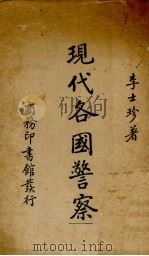 李士珍著
現代各國警察
商務印書館發行
www.duxiu.com